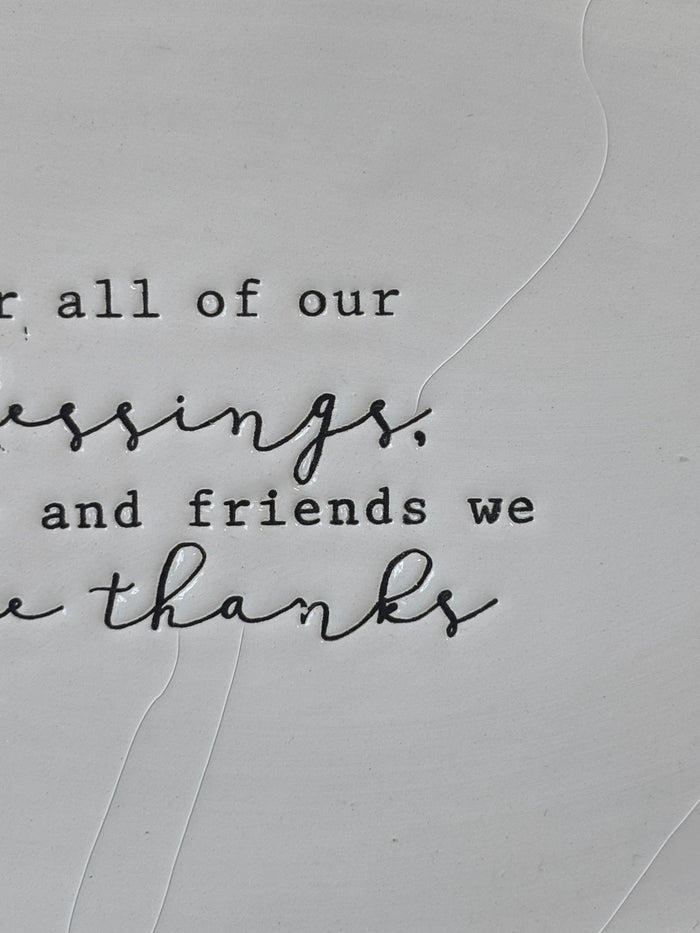 r all of our
essings,
and friends we
e thanks